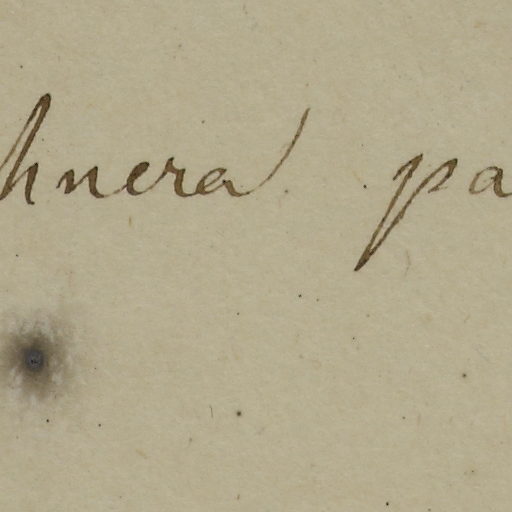 hnera pa